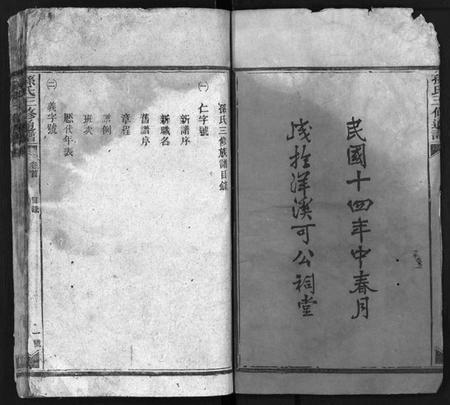 民國十四年中春月
洋溪可公祠堂
孫氏三修族譜目錄
(一) 仁字號
新譜序
新職名
舊譜序
章程
凡例
班次
歷代年表
(二) 義字號
孫氏三修
卷首
目錄
一號